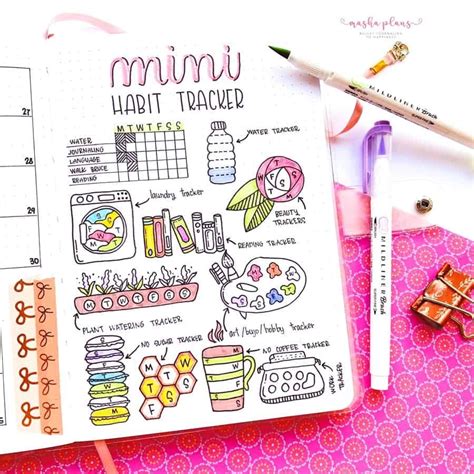 masha plans
mini
HABIT TRACKER
27
28
29
30
M T W T F S S
WATER
JOURNALING
LANGUAGE
WALK BRUCE
READING
WATER TRACKER
laundry tracker
BEAUTY
TRACKERS
READING TRACKER
M T W T F S S
PLANT WATERING TRACKER
art/bujo/hobby tracker
NO SUGAR TRACKER
NO COFFEE TRACKER
WORK
TRACKER
MILDLINER Brush
MILDLINER Brush